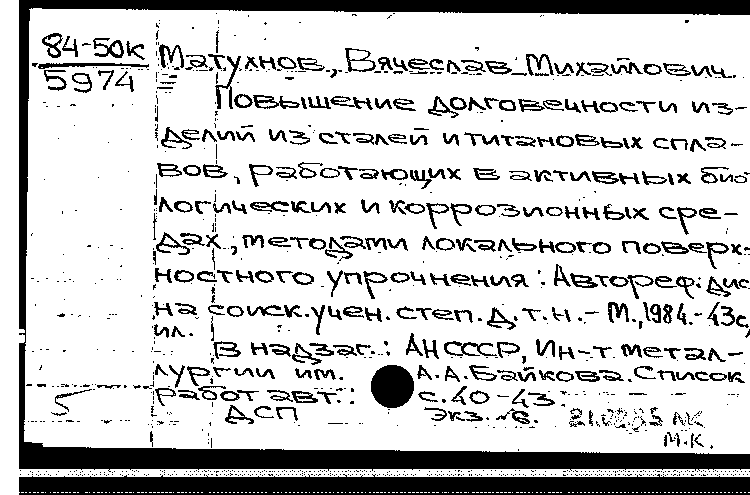 84-50к
5974
Матухнов, Вячеслав Михайлович.
Повышение долговечности из-
делий из сталей и титановых спла-
вов, работающих в активных био
логических и коррозионных сре-
дах, методами локального поверх-
ностного упрочнения: Автореф. дис
на соиск. учен. степ. д.т.н. - М., 1984. - 43с,
ил.
В надзаг.: АН СССР, Ин-т метал-
лургии им. А.А.Байкова. Список
работ авт.: с.40-43.
5
ДСП экз. 21.0285 NK
М.К.